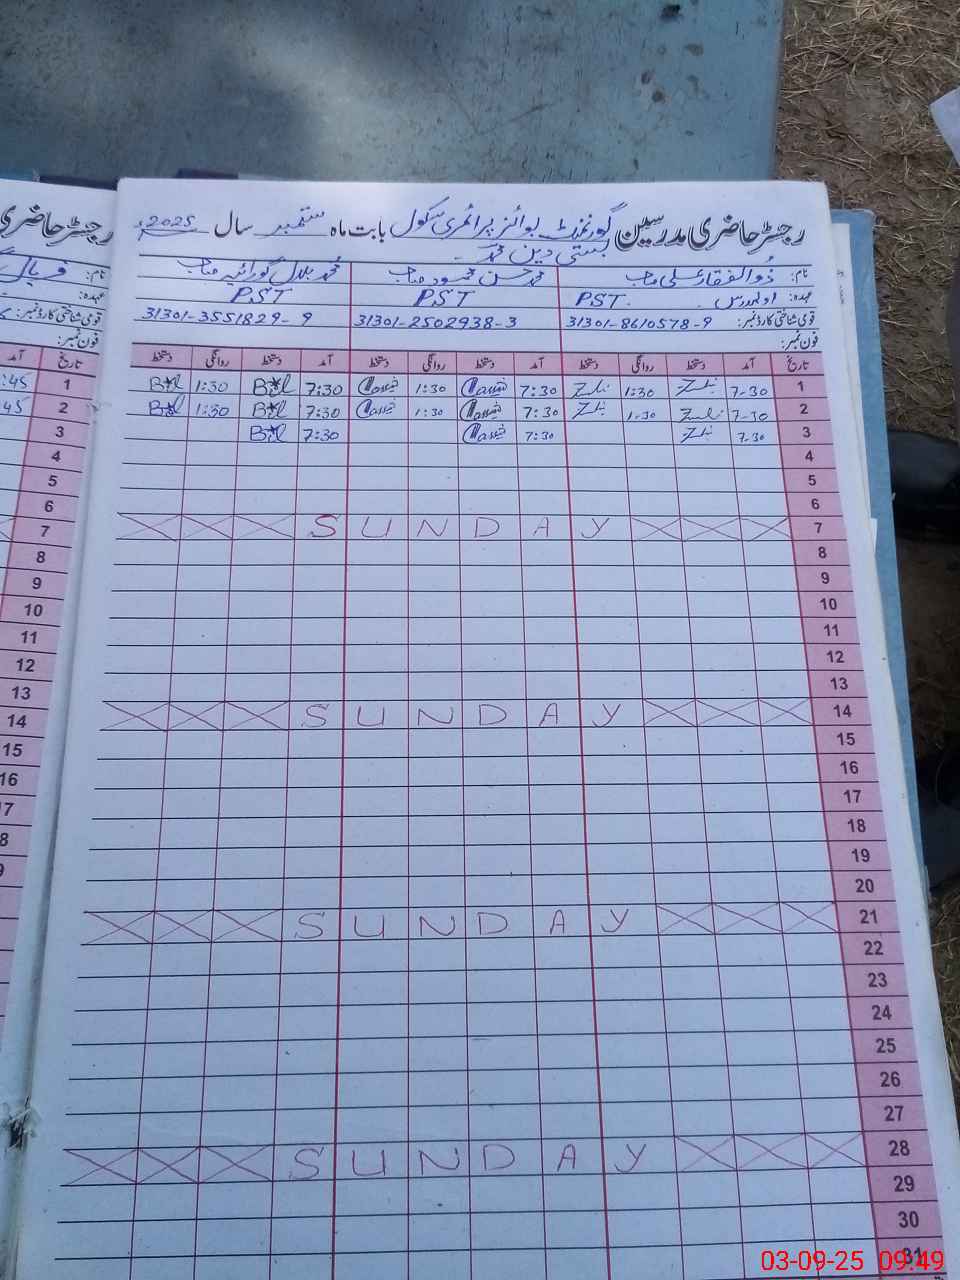 رجسٹر حاضری مدرسین گورنمنٹ بوائز پرائمری سکول بابت ماہ ستمبر سال 2025ء
بستی دین محمد
نام: ذوالفقار علی صاحب محمد حسن محمود صاحب محمد بلال گورائیہ صاحب
عہدہ: اول مدرس PST. PST PST
قومی شناختی کارڈ نمبر: 31301-8610578-9 31301-2502938-3 31301-3551829-9
فون نمبر:
تاریخ آمد دستخط روانگی دستخط آمد دستخط روانگی دستخط آمد دستخط روانگی دستخط
1 7-30 1:30 7:30 1:30 7:30 1:30
2 7-30 1-30 7:30 1:30 7:30 1:30
3 7-30 7:30 7:30
4
5
6
7 SUNDAY
8
9
10
11
12
13
14 SUNDAY
15
16
17
18
19
20
21 SUNDAY
22
23
24
25
26
27
28 SUNDAY
29
30
31
رجسٹر حاضری
نام:
عہدہ:
قومی شناختی کارڈ نمبر:
فون نمبر:
تاریخ آمد
1 :45
2 :45
3
4
5
6
7
8
9
10
11
12
13
14
15
16
17
03-09-25 09:49